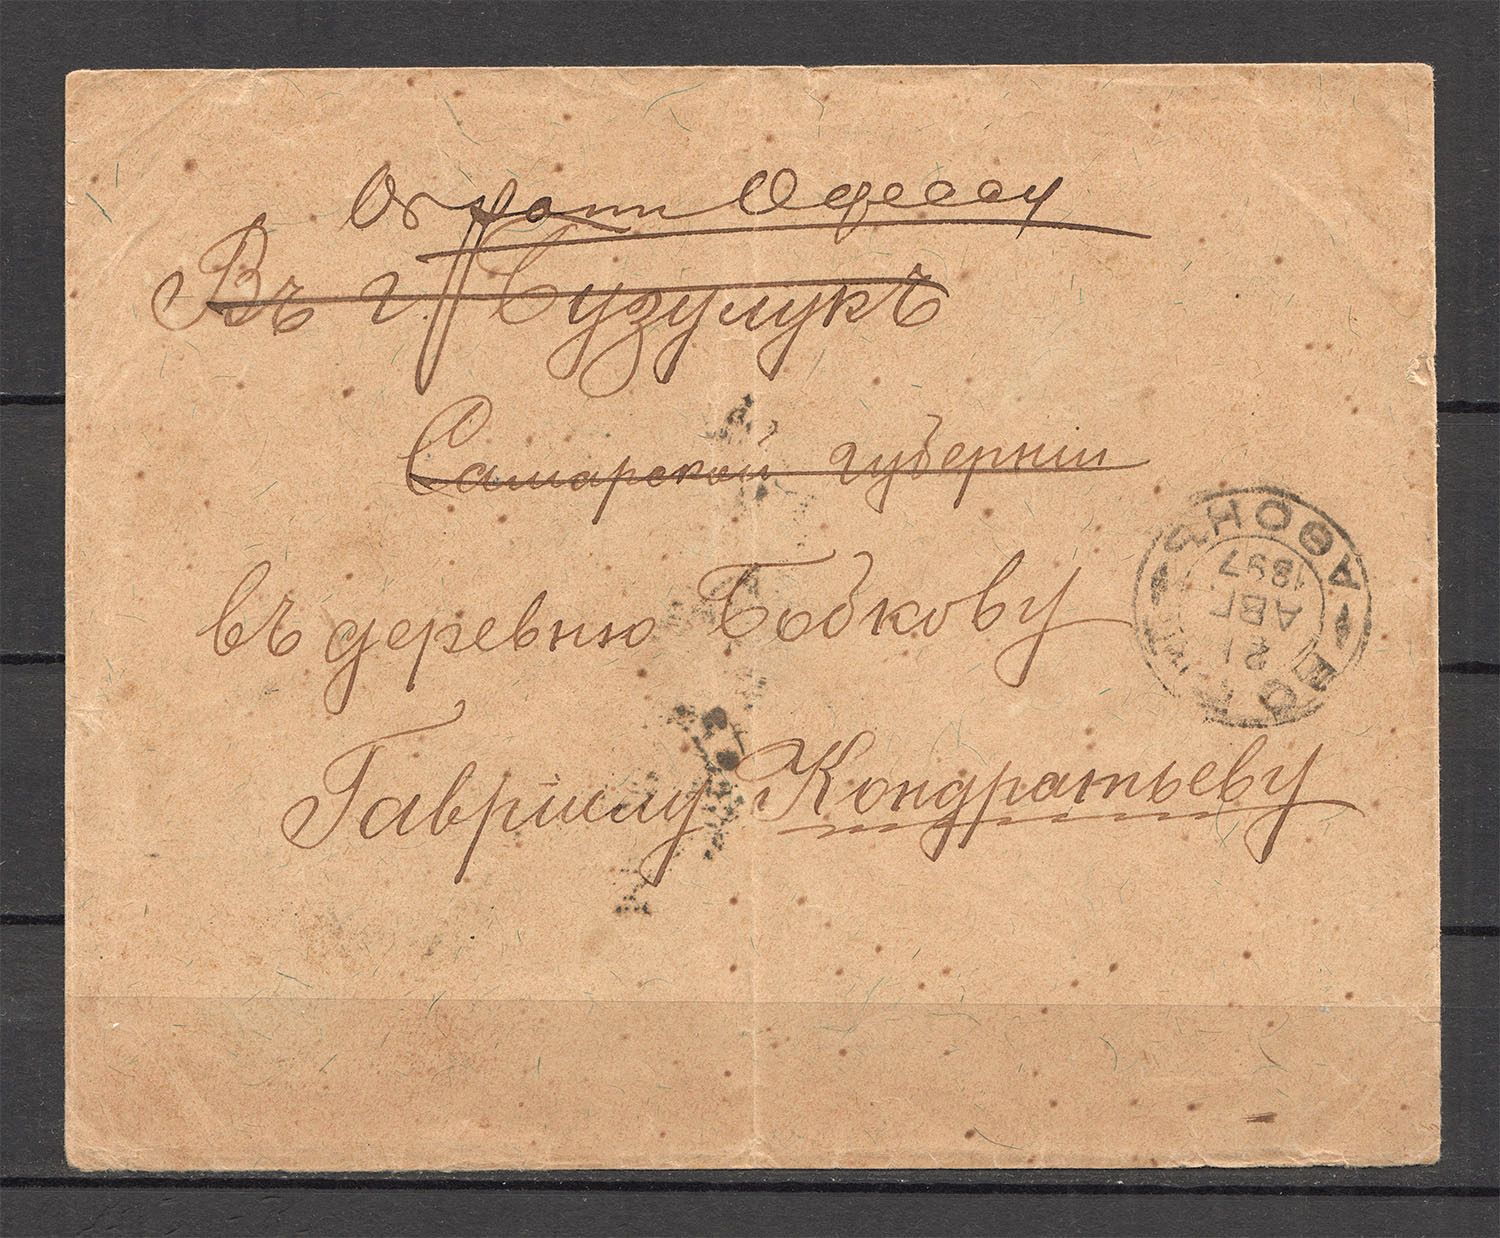 Обратно Одессу
Въ г. Бузулукъ
Самарской губерніи
въ деревню Бобкову
Гавріилу Кондратьеву
АѲОНЪ
1897
АВГ.
21
РОПИТ